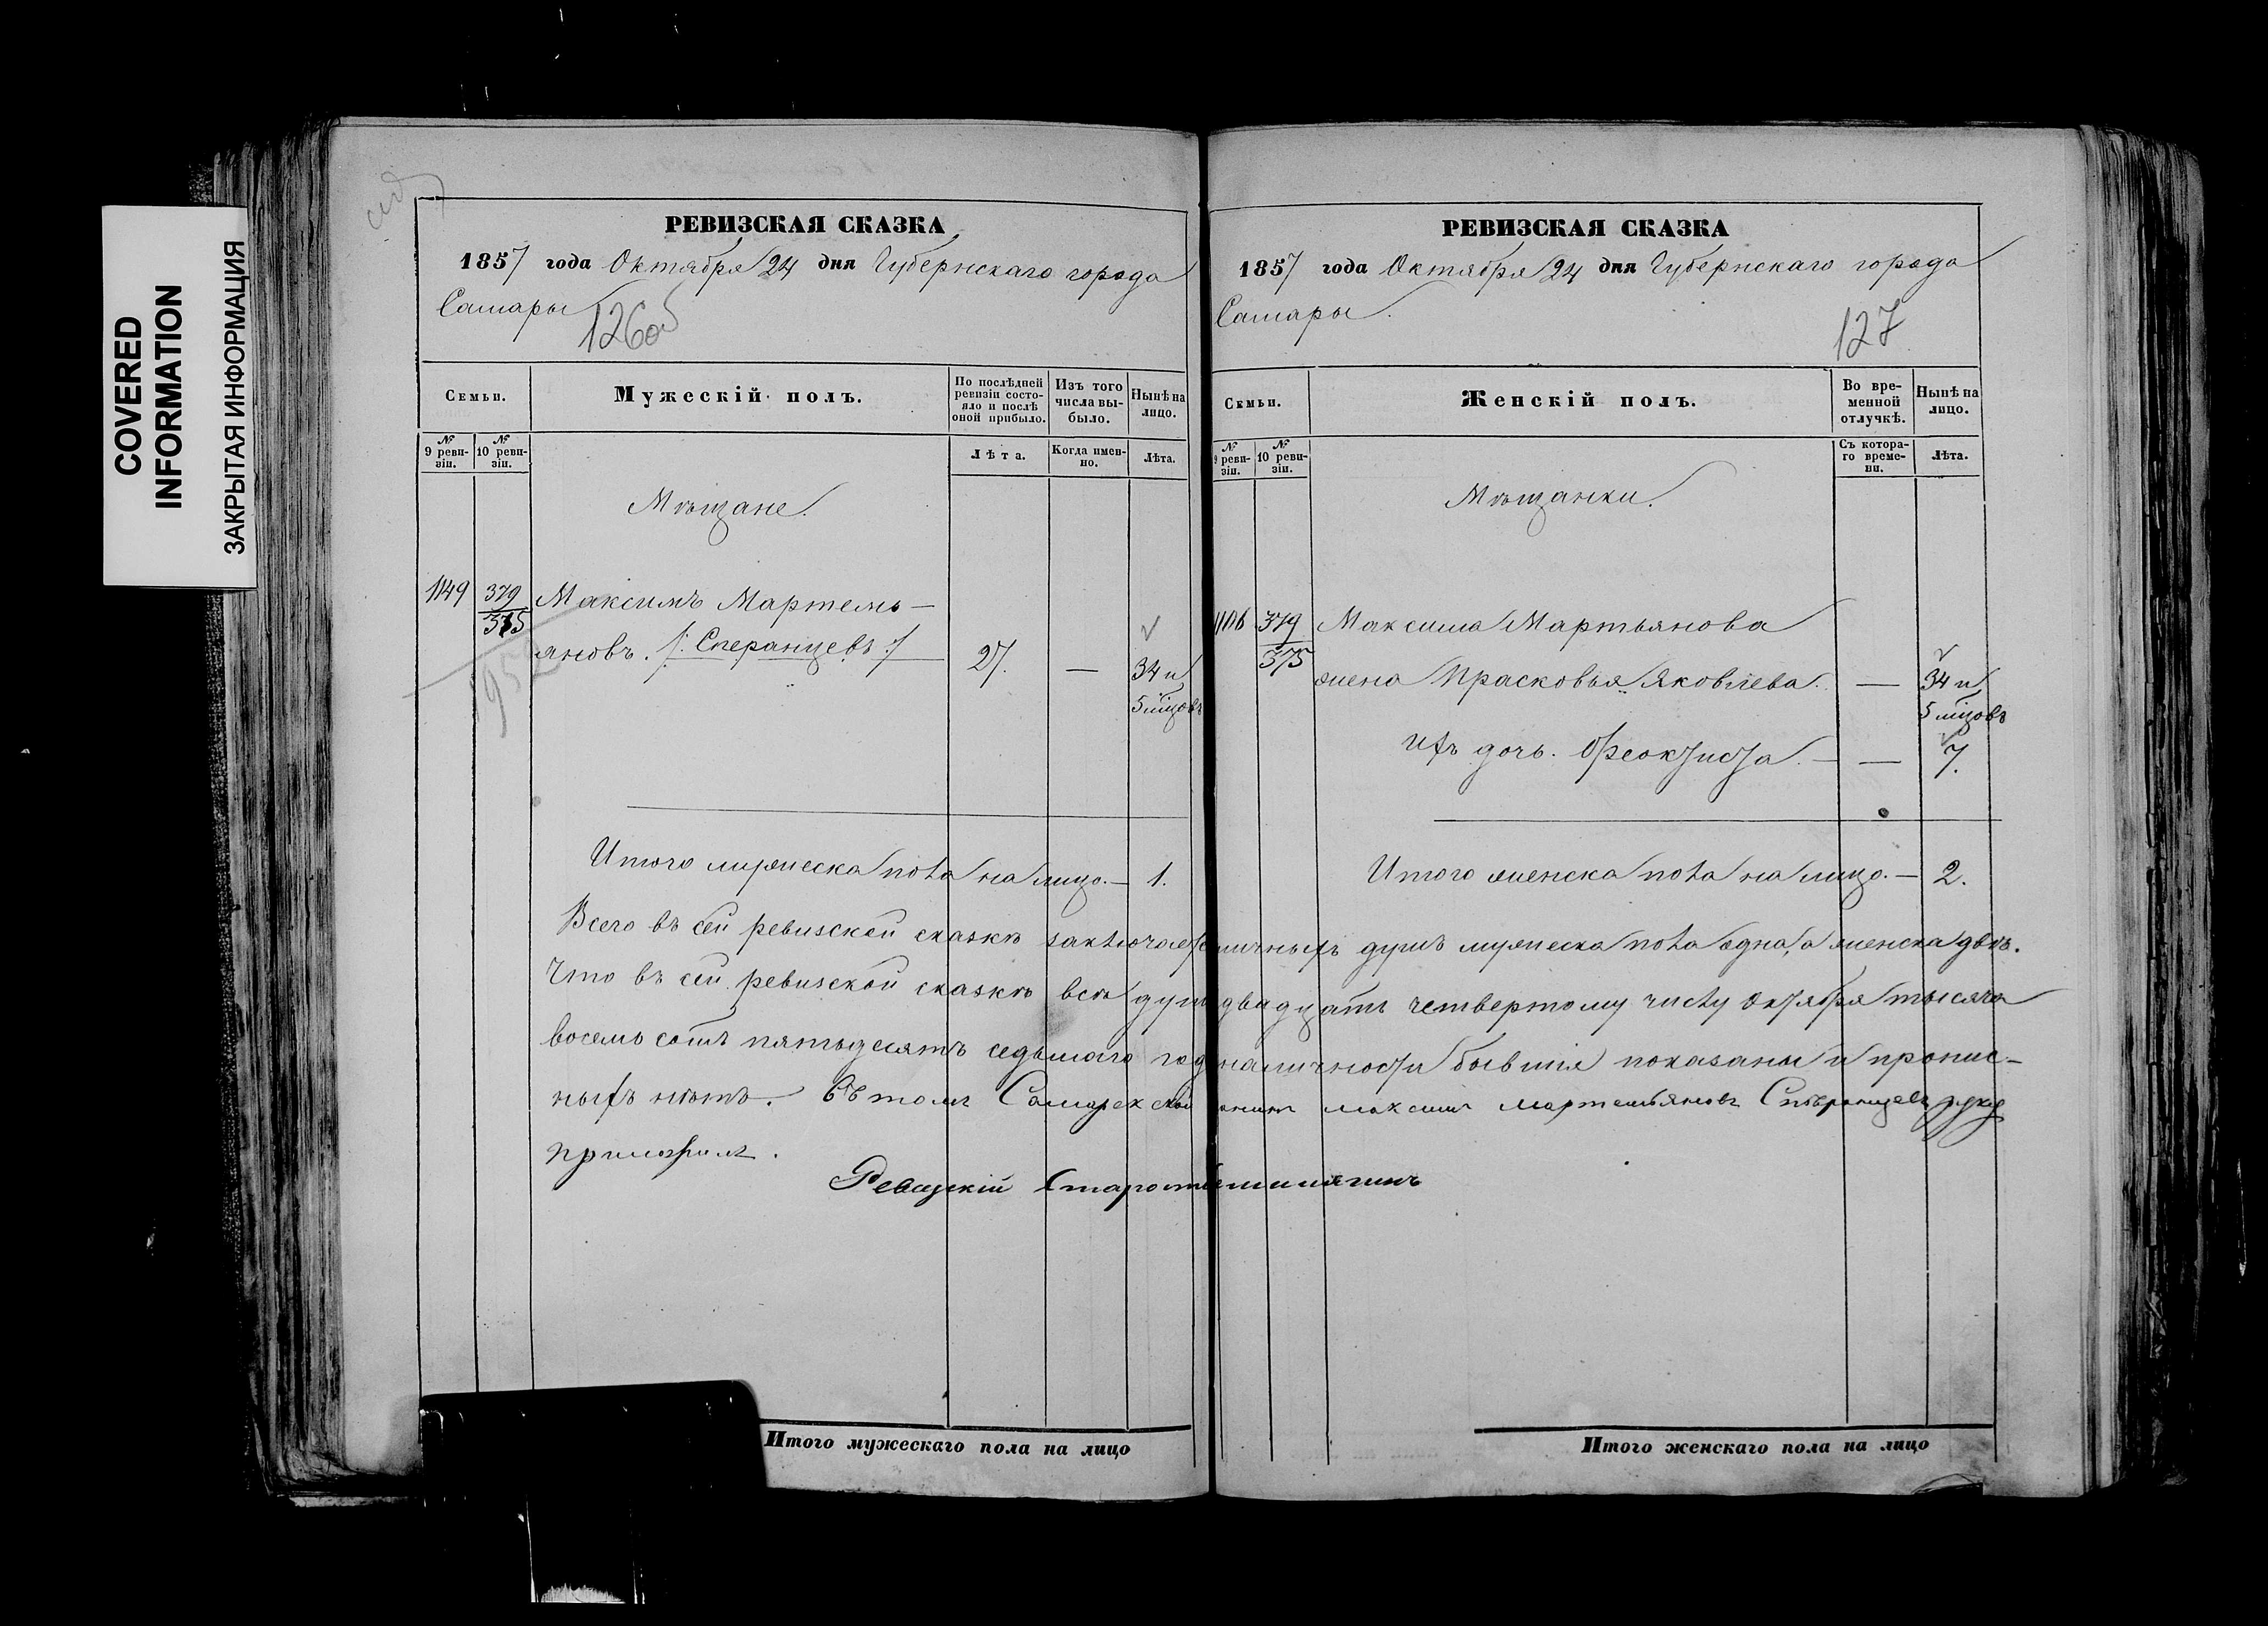 COVERED
INFORMATION
ЗАКРЫТАЯ ИНФОРМАЦИЯ
РЕВИЗСКАЯ СКАЗКА
1857 года Октября 24 дня Губернскаго города
Самары
126об
Семьи.
Мужескій полъ.
По послѣдней ревизіи состояло и послѣ оной прибыло.
Изъ того числа выбыло.
Нынѣ на лицо.
№ 9 ревизіи.
№ 10 ревизіи.
Лѣта.
Когда именно.
Лѣта.
Мѣщане.
1149 379 Максимъ Мартемь-
375
яновъ. /: Сперанцевъ :/ 27. — 34 и
5 мѣсцовъ
952
Итого мужеска пола на лицо. — 1.
РЕВИЗСКАЯ СКАЗКА
1857 года Октября 24 дня Губернскаго города
Самары.
127
Семьи.
Женскій полъ.
Во временной отлучкѣ.
Нынѣ на лицо.
№ 9 ревизіи.
№ 10 ревизіи.
Съ котораго времени.
Лѣта.
Мѣщанки.
379 Максима Мартьянова
375
жена Прасковья Яковлева. — 34 и
5 мѣсцовъ
Ихъ дочь. Феоктиста. — — 7.
Итого женска пола на лицо. — 2.
Всего въ сей ревизской сказкѣ заключается личныхъ душъ мужеска пола одна, а женска двѣ.
Что въ сей ревизской сказкѣ всѣ двадцать четвертому числу Октября тысяча
восемь сотъ пятьдесятъ седьмаго наличности бывшіе показаны и пропис-
ныхъ нѣтъ. Въ томъ Самарской Максимъ Мартемьяновъ Сперанцевъ руку
приложилъ.
Ревизскій Староста
Итого мужескаго пола на лицо
Итого женскаго пола на лицо